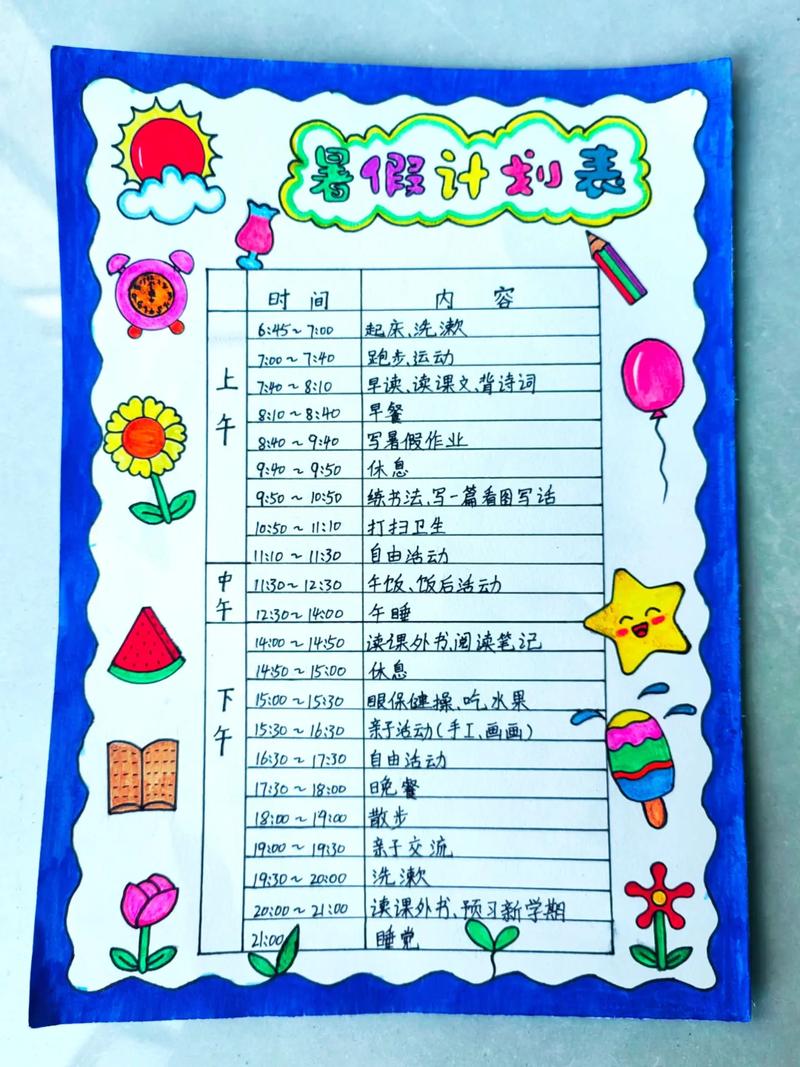 暑假计划表
时间 内容
上午
6:45~7:00 起床、洗漱
7:00~7:40 跑步、运动
7:40~8:10 早读、读课文、背诗词
8:10~8:40 早餐
8:40~9:40 写暑假作业
9:40~9:50 休息
9:50~10:50 练书法、写一篇看图写话
10:50~11:10 打扫卫生
11:10~11:30 自由活动
中午
11:30~12:30 午饭、饭后活动
12:30~14:00 午睡
下午
14:00~14:50 读课外书、阅读笔记
14:50~15:00 休息
15:00~15:30 眼保健操、吃水果
15:30~16:30 亲子活动(手工、画画)
16:30~17:30 自由活动
17:30~18:00 晚餐
18:00~19:00 散步
19:00~19:30 亲子交流
19:30~20:00 洗漱
20:00~21:00 读课外书、预习新学期
21:00 睡觉